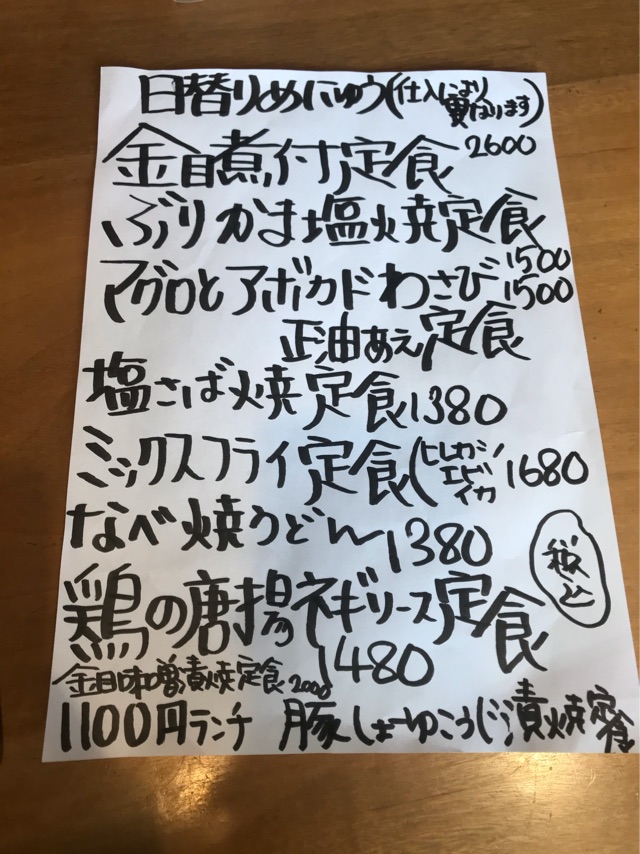 日替りめにゅう(仕入により異なります)
金目煮付定食 2600
ぶりかま塩焼定食 1500
マグロとアボカドわさび 1500
正油あえ定食
塩さば焼定食 1380
ミックスフライ定食(ヒレカツ エビ イカ 1680
なべ焼うどん 1380
税込
鶏の唐揚ネギソース定食
1480
金目味噌漬焼定食 2000
1100円ランチ 豚しょーゆこうじ漬焼定食